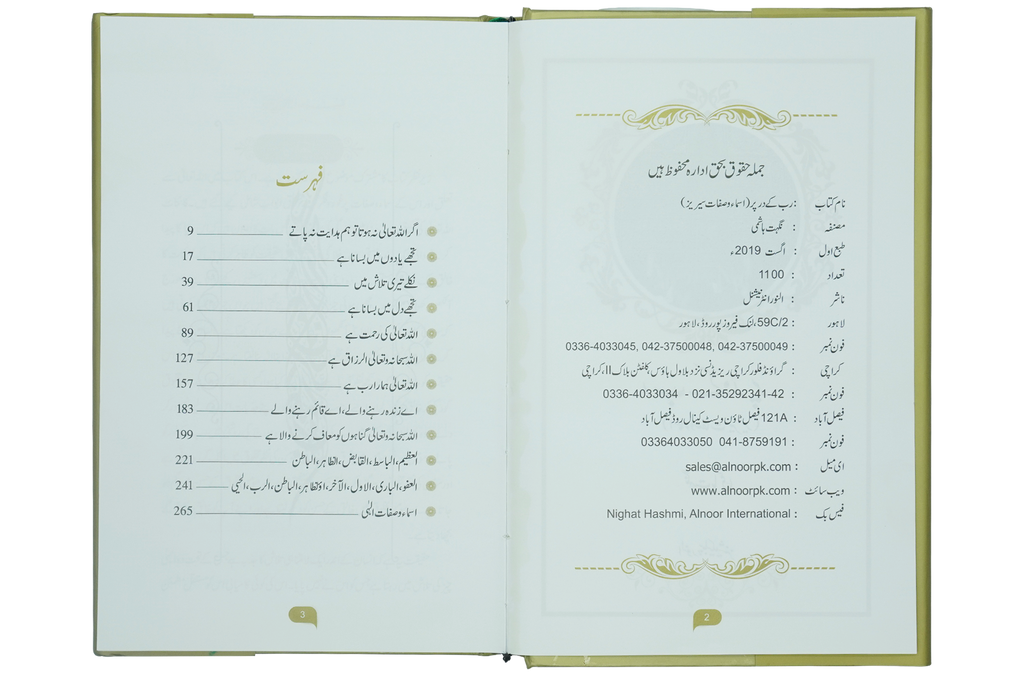 جملہ حقوق بحق ادارہ محفوظ ہیں
نام کتاب : رب کے در پر (اسماء و صفات سیریز)
مصنفہ : نگہت ہاشمی
طبع اول : اگست 2019ء
تعداد : 1100
ناشر : النور انٹرنیشنل
لاہور : 59C/2، لنک فیروز پور روڈ، لاہور
فون نمبر : 0336-4033045, 042-37500048, 042-37500049
کراچی : گراؤنڈ فلور کراچی ریزیڈنسی نزد بلاول ہاؤس کلفٹن بلاک II، کراچی
فون نمبر : 0336-4033034 - 021-35292341-42
فیصل آباد : 121A فیصل ٹاؤن ویسٹ کینال روڈ فیصل آباد
فون نمبر : 03364033050 041-8759191
ای میل : sales@alnoorpk.com
ویب سائٹ : www.alnoorpk.com
فیس بک : Nighat Hashmi, Alnoor International
2
فہرست
اگر اللہ تعالیٰ نہ ہوتا تو ہم ہدایت نہ پاتے 9
تجھے یادوں میں بسانا ہے 17
نکلے تیری تلاش میں 39
تجھے دل میں بسانا ہے 61
اللہ تعالیٰ کی رحمت ہے 89
اللہ سبحانہ وتعالیٰ الرزاق ہے 127
اللہ تعالیٰ ہمارا رب ہے 157
اے زندہ رہنے والے، اے قائم رہنے والے 183
اللہ سبحانہ وتعالیٰ گناہوں کو معاف کرنے والا ہے 199
العظیم، الباسط، القابض، الظاہر، الباطن 221
العفو، الباری، الاول، الآخر، الظاہر، الباطن، الرب، الحیی 241
اسماء وصفات الٰہی 265
3